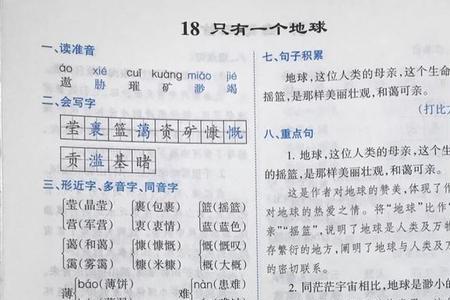 18 只有一个地球
一、读准音
áo xié cuǐ kuàng miǎo jié
遨 胁 璀 矿 渺 竭
二、会写字
莹 裹 篮 蔼 资 矿 慷 慨
贡 滥 基 睹
三、形近字、多音字、同音字
莹(晶莹) 裹(包裹) 篮(摇篮)
营(军营) 衷(衷情) 蓝(蓝色)
蔼(和蔼) 慷(慷慨) 慨(慨叹)
霭(雾霭) 糠(米糠) 概(大概)
薄 báo(薄饼) 难 nàn(患难)
七、句子积累
地球,这位人类的母亲,这个生命
摇篮,是那样美丽壮观,和蔼可亲。
(打比
八、重点句
1. 地球,这位人类的母亲,这个生
的摇篮,是那样美丽壮观,和蔼可亲。
这是作者对地球的赞美,体现了作
对地球的热爱之情。将“地球”比作
亲”“摇篮”,说明了地球是人类及万
存繁衍的地方,阐明了地球与人类及万
的密切联系。
2. 同茫茫宇宙相比,地球是渺小的